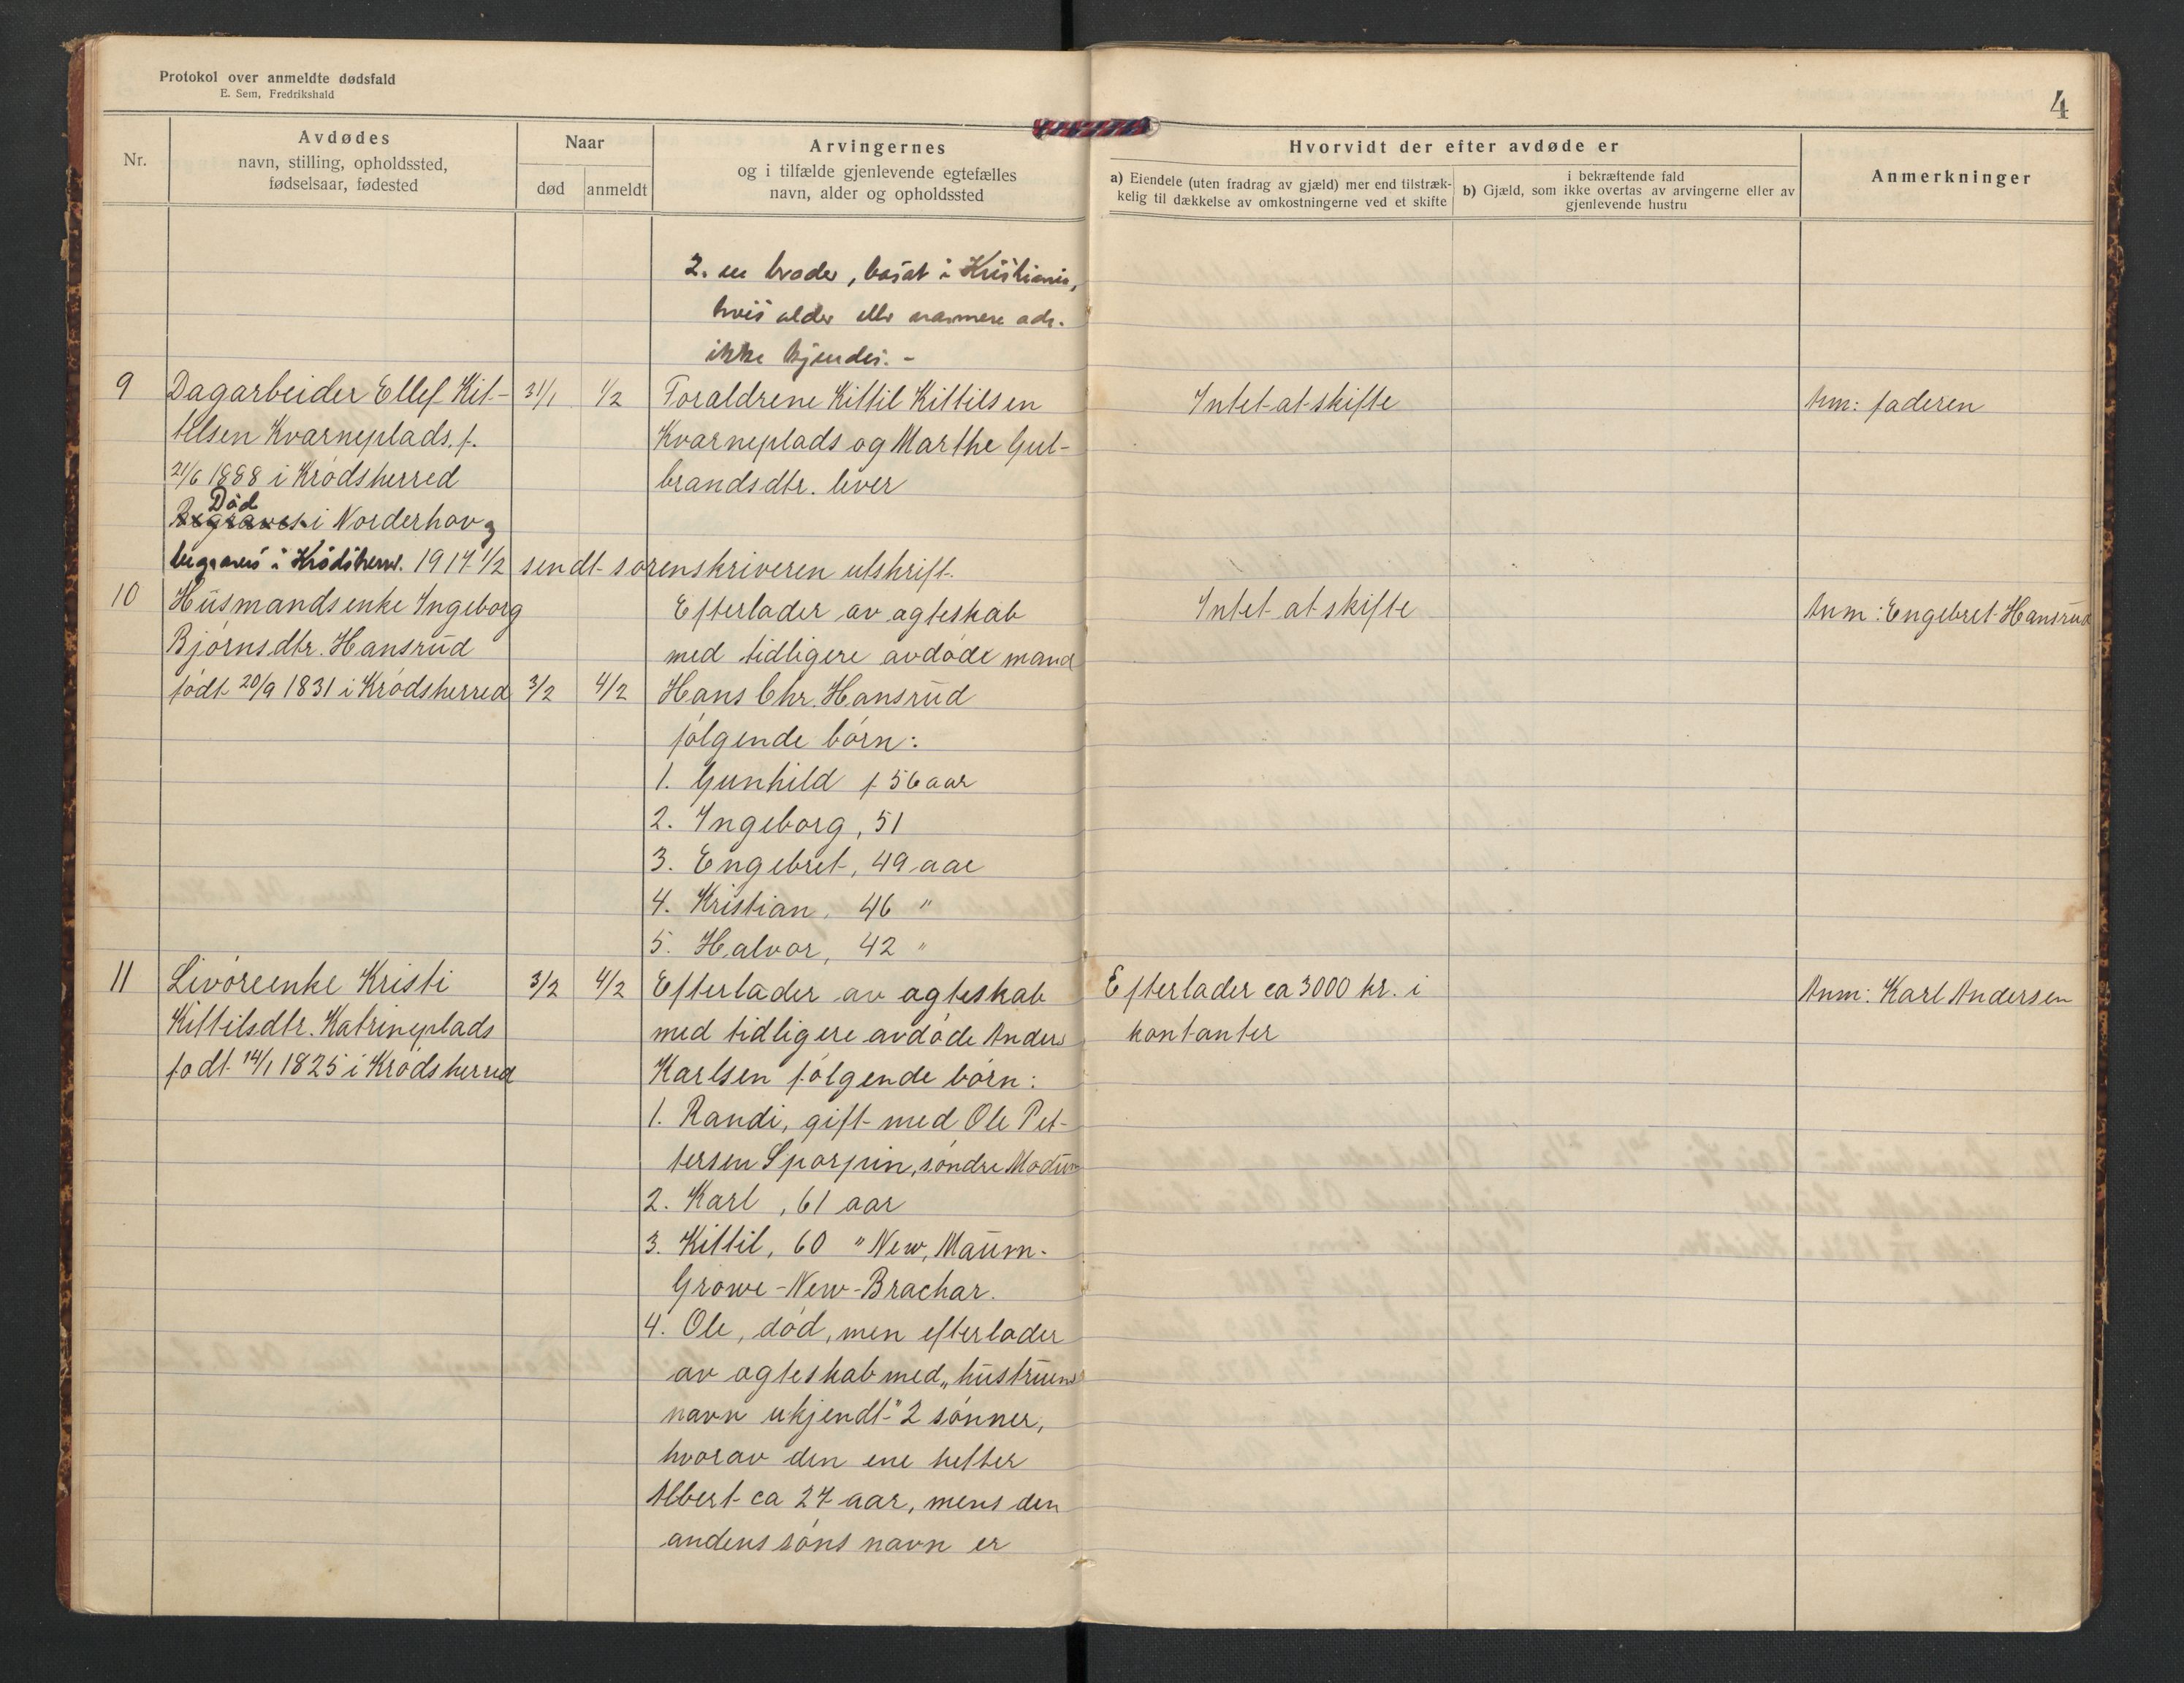 Protokol over anmeldte dødsfald
E. Sem, Fredrikshald
4
Nr.
Avdødes
navn, stilling, opholdssted,
fødselsaar, fødested
Naar
død
anmeldt
Arvingernes
og i tilfælde gjenlevende egtefælles
navn, alder og opholdssted
Hvorvidt der efter avdøde er
a) Eiendele (uten fradrag av gjæld) mer end tilstræk-
kelig til dækkelse av omkostningerne ved et skifte
i bekræftende fald
b) Gjæld, som ikke overtas av arvingerne eller av
gjenlevende hustru
Anmerkninger
2. en broder, bosat i Kristiania,
hvis alder eller nærmere adr.
ikke kjendes. -
9
Dagarbeider Ellef Kit-
telsen Kvarneplads. f.
21/6 1888 i Krødsherred
Død
Begraves i Norderhov og
begraves i Krødsherred. 1917 1/2 sendt sorenskriveren utskrift.
31/1
1/2
Foraldrene Kittil Kittilsen
Kvarneplads og Marthe Gul-
brandsdtr. lever
Intet at skifte
Anm: faderen
10
Husmandsenke Ingeborg
Bjørnsdtr. Hansrud
født 20/9 1831 i Krødsherred
3/2
4/2
Efterlader av agteskab
med tidligere avdøde mand
Hans Chr. Hansrud
følgende børn:
1. Gunhild f 56 aar
2. Ingeborg, 51
3. Engebret, 49 aar
4. Kristian, 46 "
5. Halvor, 42 "
Intet at skifte
Anm: Engebret Hansrud
11
Livøreenke Kristi
Kittilsdtr. Katrineplads
født 14/1 1825 i Krødsherred
3/2
4/2
Efterlader av agteskab
med tidligere avdøde Anders
Karlsen følgende børn:
1. Randi, gift med Ole Pet-
tersen Sporpin, søndre Modum
2. Karl, 61 aar
3. Kittil, 60 " New, Maum-
Growe - New - Brachar.
4. Ole, død, men efterlader
av agteskab med „hustruens
navn ukjendt" 2 sønner,
hvorav den ene hetter
Albert ca 27 aar, mens den
andens søns navn er
Efterlader ca 3000 kr. i
kontanter
Anm: Karl Andersen